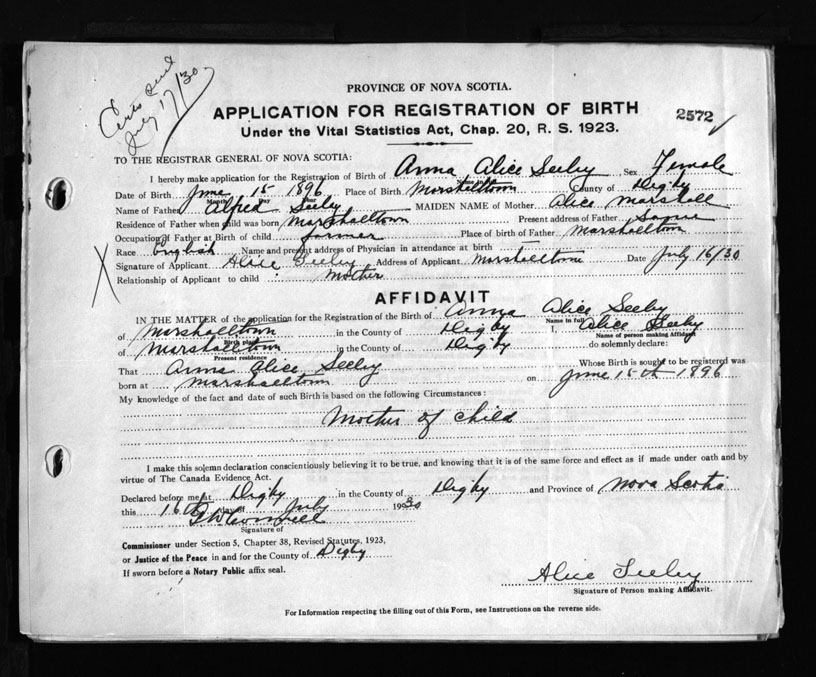 Certs sent
July 17/30
PROVINCE OF NOVA SCOTIA.
APPLICATION FOR REGISTRATION OF BIRTH
2572
Under the Vital Statistics Act, Chap. 20, R. S. 1923.
TO THE REGISTRAR GENERAL OF NOVA SCOTIA:
I hereby make application for the Registration of Birth of Anna Alice Seeley Sex Female
Name in full
Date of Birth June 15 1896 Place of Birth Marshalltown County of Digby
Month Day Year
Name of Father Alfred Seeley MAIDEN NAME of Mother Alice Marshall
Residence of Father when child was born Marshalltown Present address of Father Same
Occupation of Father at Birth of child farmer Place of birth of Father Marshalltown
Race English Name and present address of Physician in attendance at birth —
Signature of Applicant Alice Seeley Address of Applicant Marshalltown Date July 16/30
Relationship of Applicant to child Mother
AFFIDAVIT
IN THE MATTER of the application for the Registration of the Birth of Anna Alice Seeley
Name in full
of Marshalltown in the County of Digby I, Alice Seeley
Birth place
Name of person making Affidavit
of Marshalltown in the County of Digby do solemnly declare:
Present residence
That Anna Alice Seeley Whose Birth is sought to be registered was
born at Marshalltown on June 15th 1896
My knowledge of the fact and date of such Birth is based on the following Circumstances:
Mother of child
I make this solemn declaration conscientiously believing it to be true, and knowing that it is of the same force and effect as if made under oath and by
virtue of The Canada Evidence Act.
Declared before me at Digby in the County of Digby and Province of Nova Scotia
this 16th day of July 1930
Signature of
Commissioner under Section 5, Chapter 38, Revised Statutes, 1923,
or Justice of the Peace in and for the County of Digby
If sworn before a Notary Public affix seal.
Alice Seeley
Signature of Person making Affidavit.
For Information respecting the filling out of this Form, see Instructions on the reverse side.